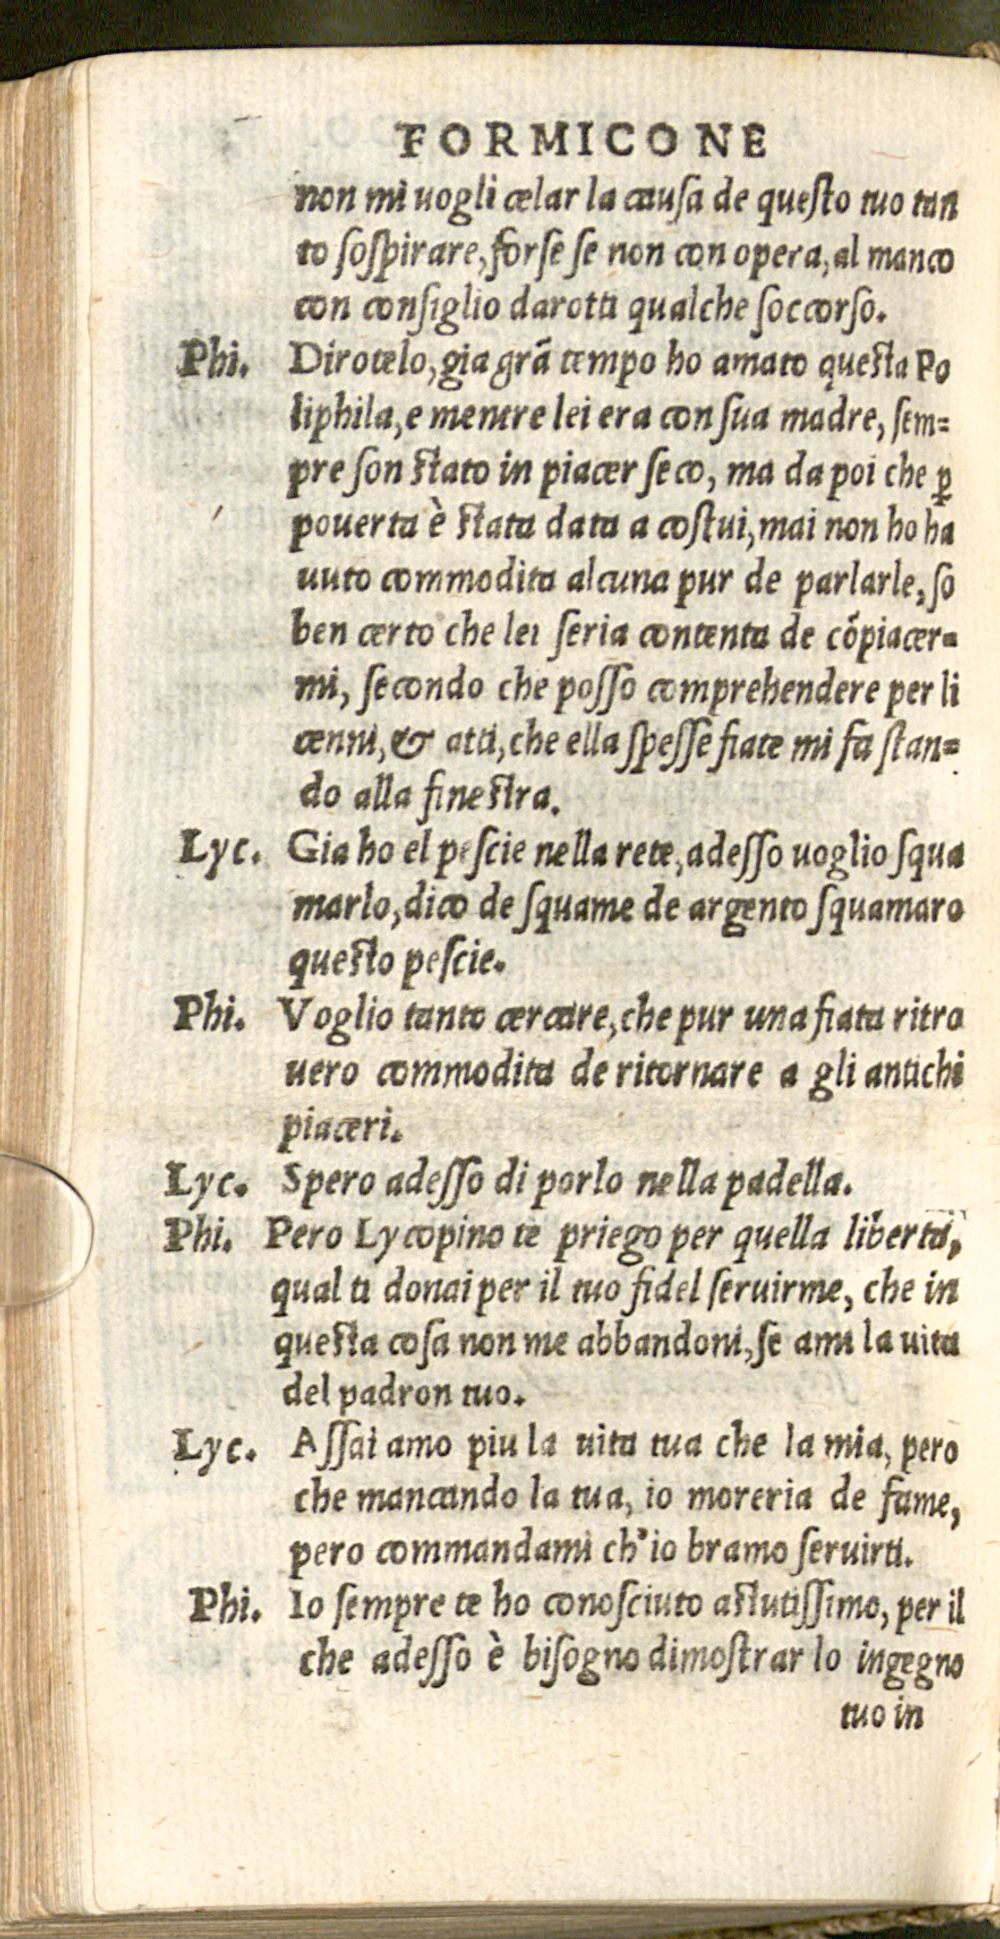 FORMICONE
non mi uogli celar la causa de queſto tuo tan
to ſoſpirare, forſe ſe non con opera, al manco
con conſiglio darotti qualche ſoccorſo.
Phi. Dirotelo, gia grã tempo ho amato queſta Po
liphila, e mentre lei era con ſua madre, ſem=
pre ſon ſtato in piacer ſeco, ma da poi che ꝑ
pouerta è ſtata data a coſtui, mai non ho ha
uuto commodita alcuna pur de parlarle, ſo
ben certo che lei ſeria contenta de cõpiacer=
mi, ſecondo che poſſo comprehendere per li
cenni, & atti, che ella ſpeſſe fiate mi fa ſtan=
do alla fineſtra.
Lyc. Gia ho el peſcie nella rete, adeſſo uoglio ſqua
marlo, dico de ſquame de argento ſquamaro
queſto peſcie.
Phi. Voglio tanto cercare, che pur una fiata ritro
uero commodita de ritornare a gli antichi
piaceri.
Lyc. Spero adeſſo di porlo nella padella.
Phi. Pero Lycopino te priego per quella liberta,
qual ti donai per il tuo fidel ſeruirme, che in
queſta coſa non me abbandoni, ſe ami la uita
del padron tuo.
Lyc. Aſſai amo piu la uita tua che la mia, pero
che mancando la tua, io moreria de fame,
pero commandami ch'io bramo ſeruirti.
Phi. Io ſempre te ho conoſciuto aſtutiſſimo, per il
che adeſſo è biſogno dimoſtrar lo ingegno
tuo in